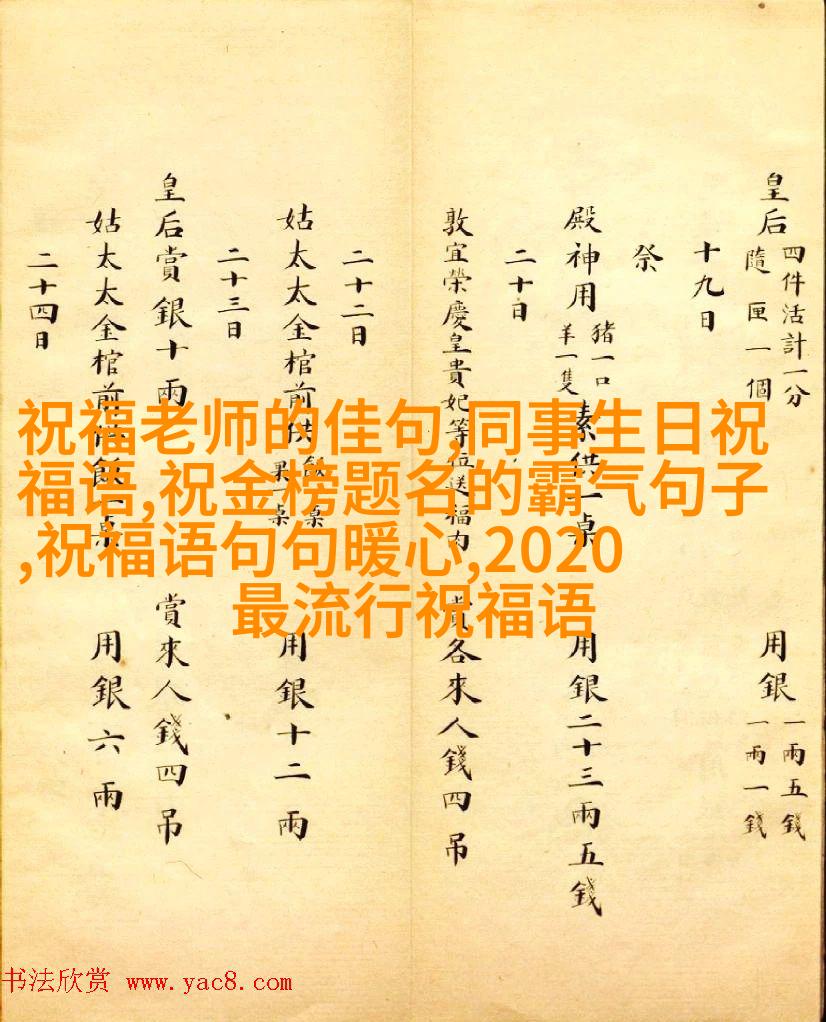 皇后 四件活計一分 隨匣一個 用銀 一兩五錢 一兩一錢
十九日
祭
殿神用 猪一口 羊一隻 素供一桌 用銀二十三兩五錢
二十日
敦宜榮慶皇貴妃等位送福肉 賞各來人錢四吊
二十二日
姑太太金棺前供 飯一桌 果一桌 用銀十二兩
二十三日
皇后賞銀十兩 賞來人錢四吊
姑太太金棺前供飯一桌 用銀六兩
二十四日
祝福老师的佳句,同事生日祝
福语,祝金榜题名的霸气句子
,祝福语句句暖心,2020
最流行祝福语
书法欣赏 www.yac8.com